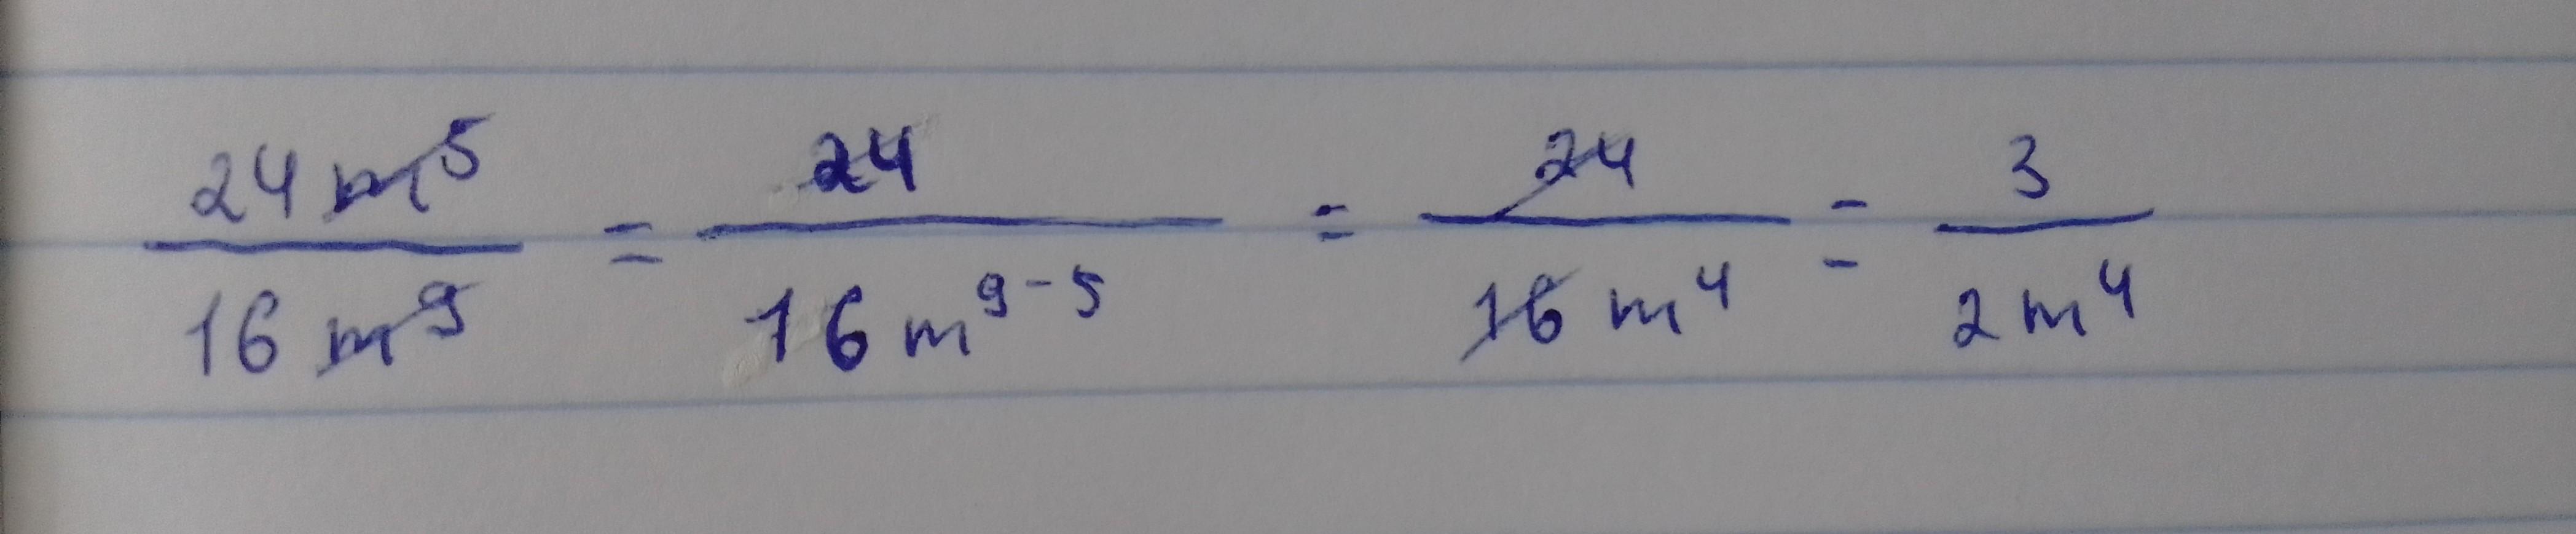 24m⁵/16m⁹ = 24/16m⁹⁻⁵ = 24/16m⁴ = 3/2m⁴